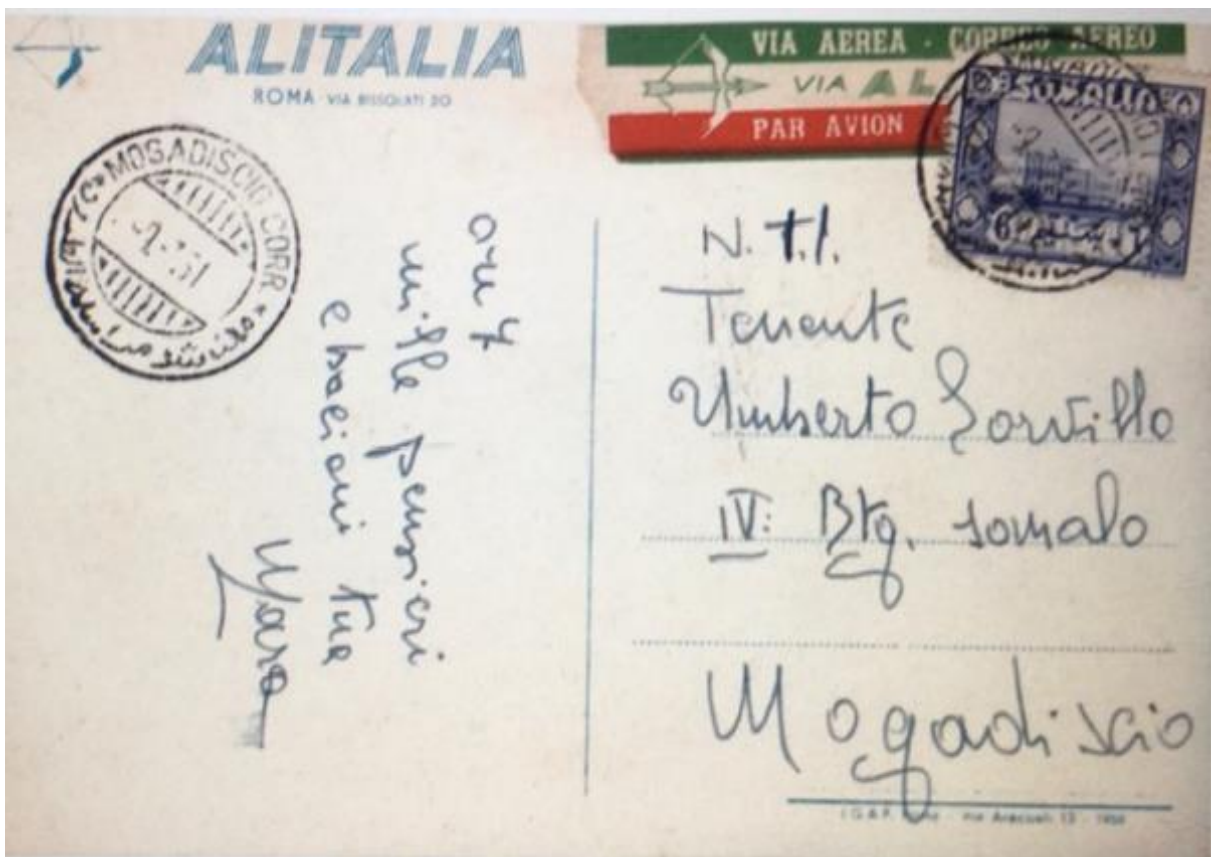 ALITALIA
ROMA · VIA BISSOLATI 20
VIA AEREA · CORREO AEREO
VIA AL
PAR AVION
SOMALIA
MOGADISCIO CORR
ore 7
mille pensieri
e bacioni tua
Mara
N. T.I.
Tenente
Umberto Sorvillo
IV: Btg. somalo
Mogadiscio